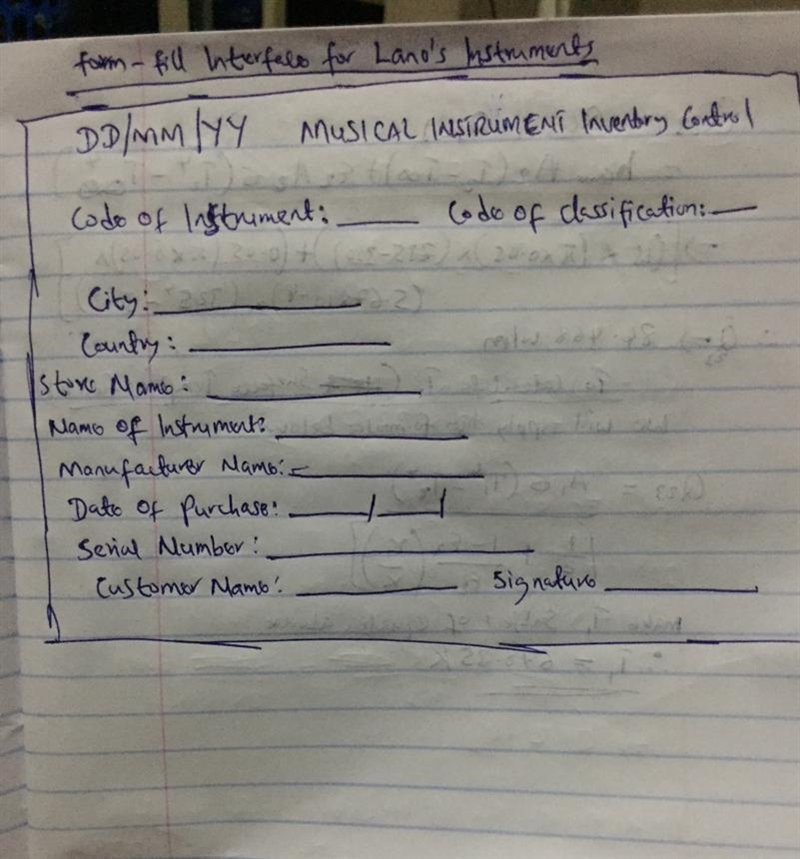 form - fill Interface for Lano's Instruments
DD/MM/YY MUSICAL INSTRUMENT Inventory Control
Code of Instrument: ____ Code of classification: ___
City: ________
Country: ________
Store Name: ________
Name of Instrument: ________
Manufacturer Name: ________
Date of Purchase: ____/____/
Serial Number: ________
Customer Name: ________ Signature ________